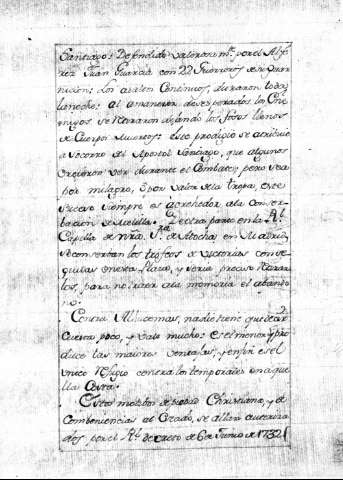 Santiago: Defendido valerosamte. por el Alfe
rez Juan Guarcia con 22 Guerreros de su guar
nicion: Los asaltos Continuos, duraron toda
la noche: al amanecer, desesperados los Ene
migos se retiraron dejando los fosos llenos
de Cuerpos muertos: este prodigio se atribuie
a socorro del Apostol Santiago, que algunos
creieron ver durante el Combate; pero sea
por milagro, ò por valor de la tropa, este
suceso siempre es acrehedor a la Conser
bacion de Melilla: De otra parte en la Rl.
Capilla de nra. Sra. de Atocha en Madrid
se conserban los trofeos de victorias conse
guidas en esta Plaza, y seria preciso retirar
los, para no traer a la memoria el abando
no.
Contra Alhucemas, nadie tiene que decir
Cuesta poco, y vale mucho: es el menor, y pro
duce las maiores ventajas, y en fin es el
unico refugio contra los temporales en aque
lla Costa.
Estos motibos de piedad Christiana, y de
Combeniencias al Estado, se allan autoriza
dos, por el Rl. decreto de 6 de Junio de 1732